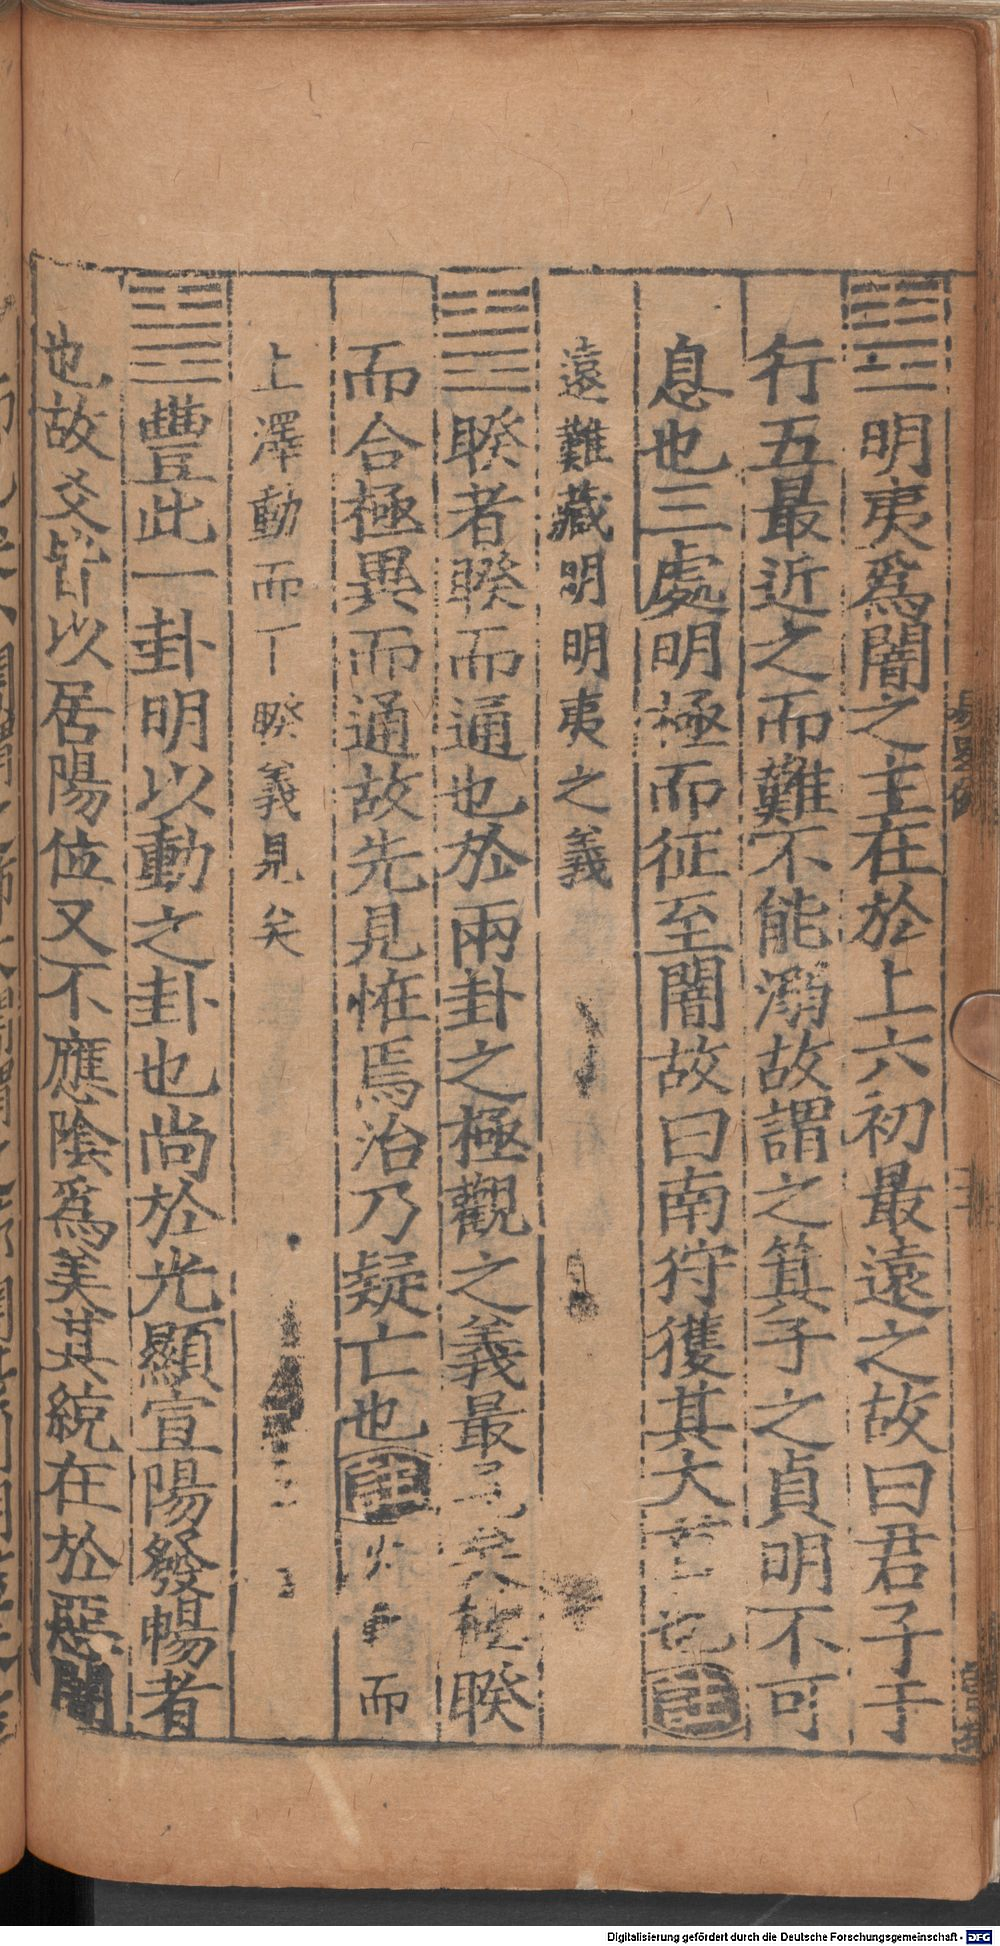 ䷣明夷爲闇之主在於上六初最遠之故曰君子于
行五最近之而難不能溺故謂之箕子之貞明不可
息也三處明極而征至闇故曰南狩獲其大首也註
遠難藏明明夷之義
䷥睽者睽而通也於兩卦之極觀之義最見矣極睽
而合極異而通故先見怪焉治乃疑亡也註火動而
上澤動而下睽義見矣
䷶豐此一卦明以動之卦也尚於光顯宣陽發暢者
也故爻皆以居陽位又不應陰爲美其統在於惡闇
Digitalisierung gefördert durch die Deutsche Forschungsgemeinschaft - DFG